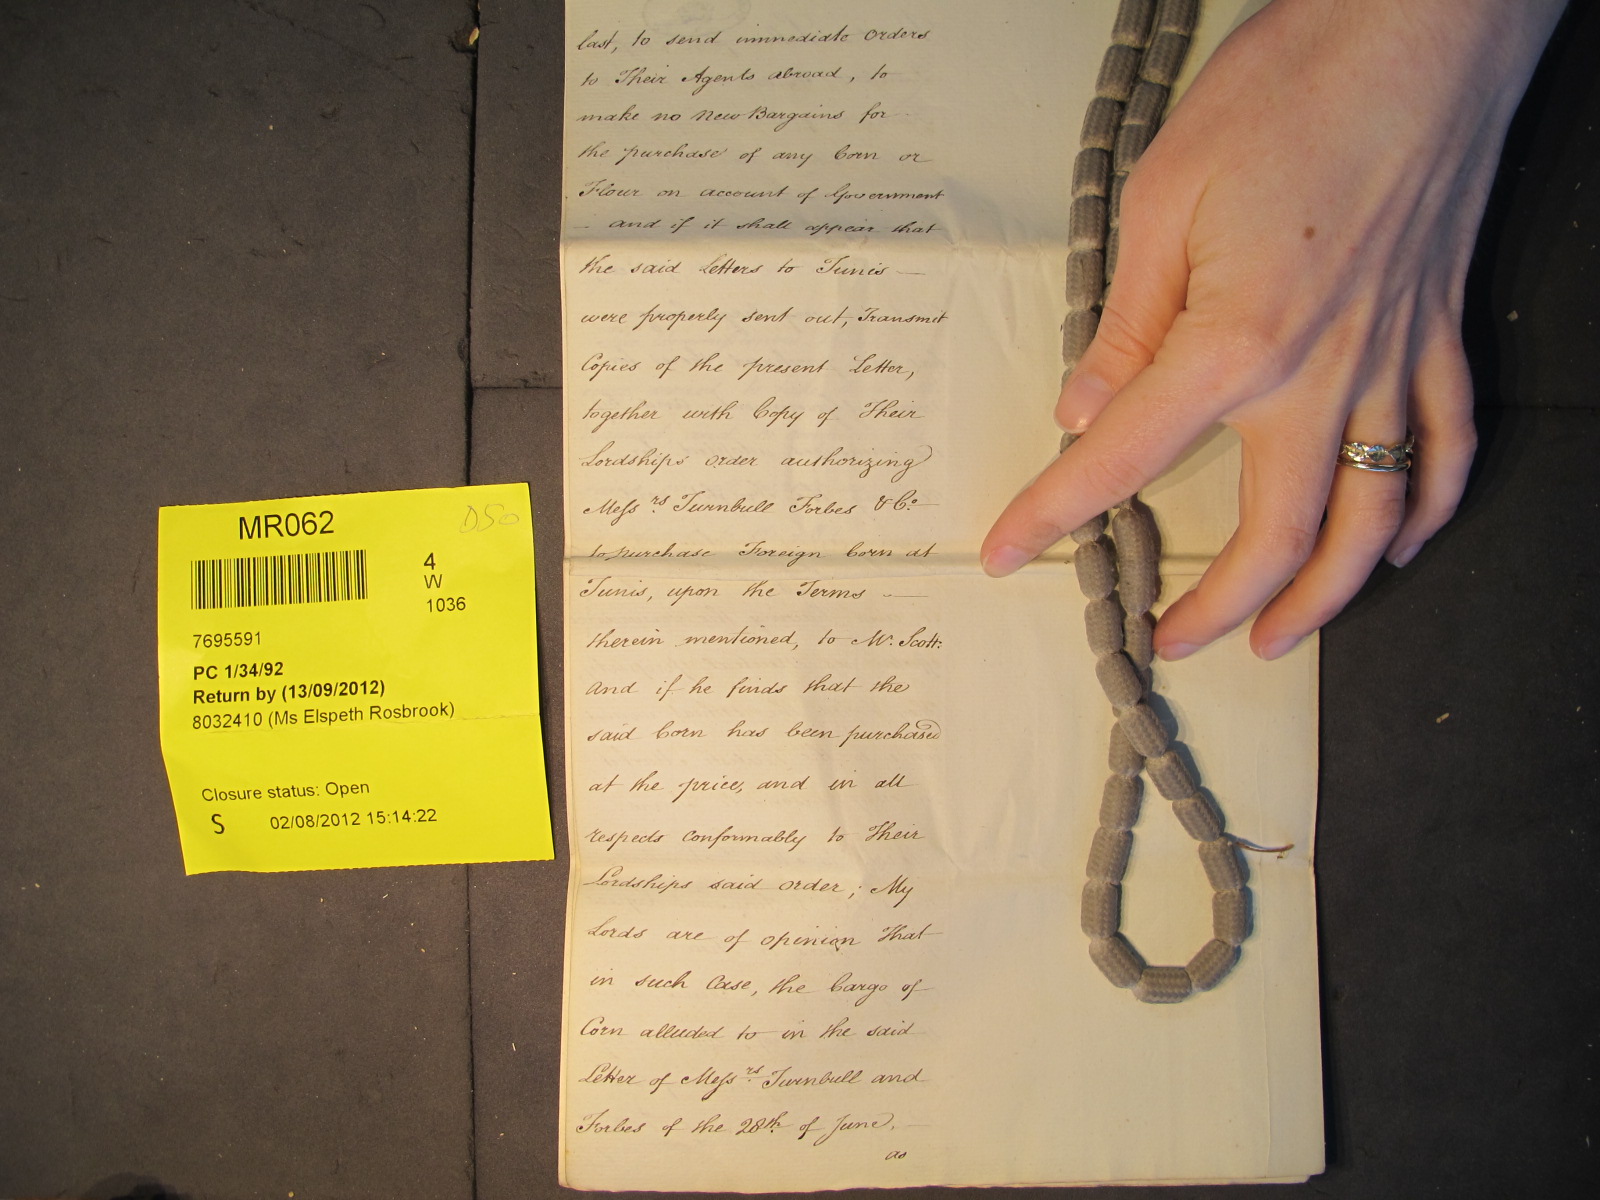 MR062
DSo
4
W
1036
7695591
PC 1/34/92
Return by (13/09/2012)
8032410 (Ms Elspeth Rosbrook)
Closure status: Open
S 02/08/2012 15:14:22
last, to send immediate Orders
to Their Agents abroad, to
make no New Bargains for
the purchase of any Corn or
Flour on account of Government
— and if it shall appear that
the said Letters to Tunis —
were properly sent out, Transmit
Copies of the present Letter,
together with Copy of Their
Lordships order authorizing
Messrs Turnbull Forbes & Co.
to purchase Foreign Corn at
Tunis, upon the Terms —
therein mentioned, to Mr. Scott:
And if he finds that the
said Corn has been purchased
at the price, and in all
respects conformably to Their
Lordships said order; My
Lords are of opinion That
in such Case, the Cargo of
Corn alluded to in the said
Letter of Messrs Turnbull and
Forbes of the 28th of June, —
as